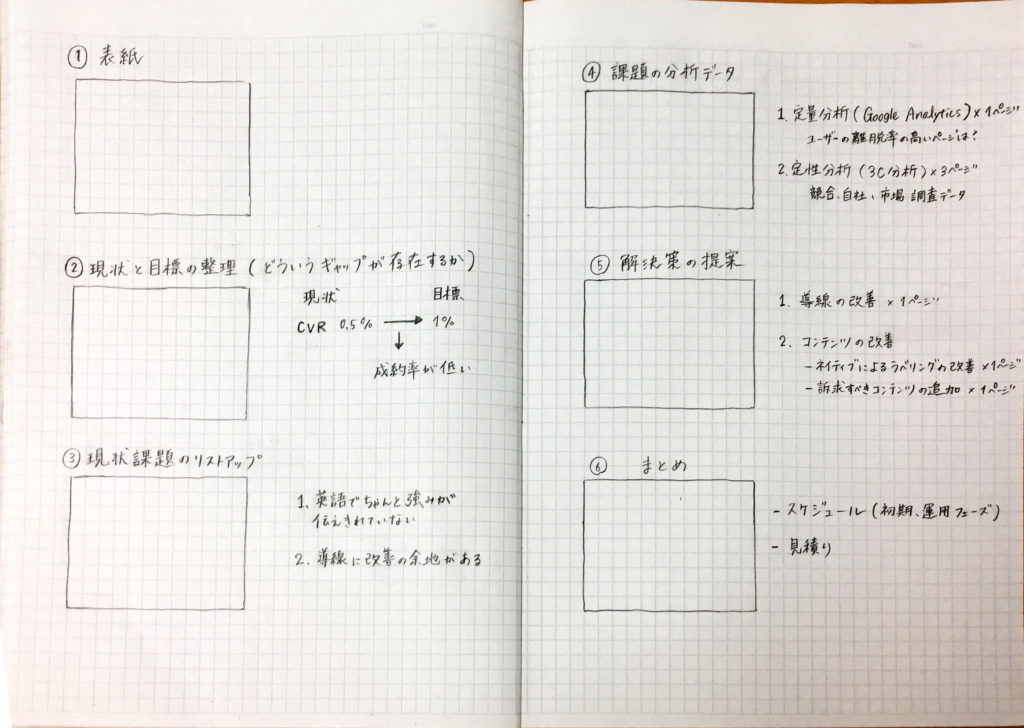 ① 表紙
② 現状と目標の整理 (どういうギャップが存在するか)
現状 目標
CVR 0.5% → 1%
↓
成約率が低い
③ 現状課題のリストアップ
1. 英語でちゃんと強みが
伝えきれていない
2. 導線に改善の余地がある
④ 課題の分析データ
1. 定量分析 (Google Analytics) × 1ページ
ユーザーの離脱率の高いページは?
2. 定性分析 (3C分析) × 3ページ
競合、自社、市場調査データ
⑤ 解決策の提案
1. 導線の改善 × 1ページ
2. コンテンツの改善
- ネイティブによるラベリングの改善 × 1ページ
- 訴求すべきコンテンツの追加 × 1ページ
⑥ まとめ
- スケジュール (初期、運用フェーズ)
- 見積り